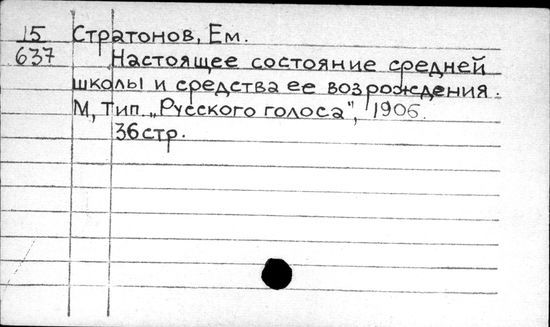 15 Стратонов, Ем.
637 Настоящее состояние средней
школы и средства ее возрождения.
М, Тип. „Русского голоса", 1906.
36 стр.